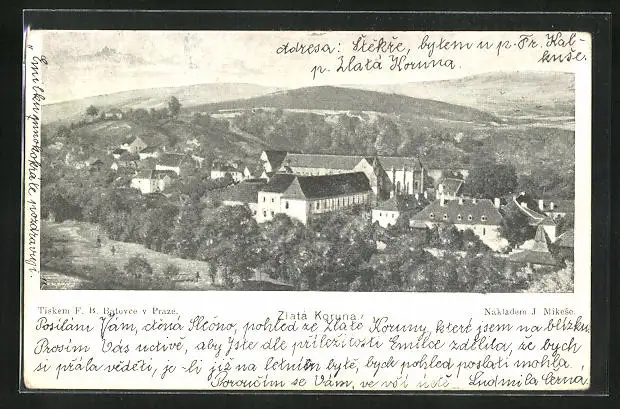 adresa: Štěkře, bytem u p. Fr. Kal-
kuše.
p. Zlatá Koruna.
pozdravuji
Tiskem F. B. Batovce v Praze.
Zlatá Koruna.
Nakladem J. Mikeše.
Posílám Vám, ctěná Slečno, pohled ze Zlaté Koruny, které jsem na blízku
Prosím Vás uctivě, aby Jste dle příležitosti Emilce zdělila, že bych
si přála věděti, je-li již na letním bytě, bych pohled poslati mohla.
Poroučím se Vám, ve vší úctě Ludmila Černá.